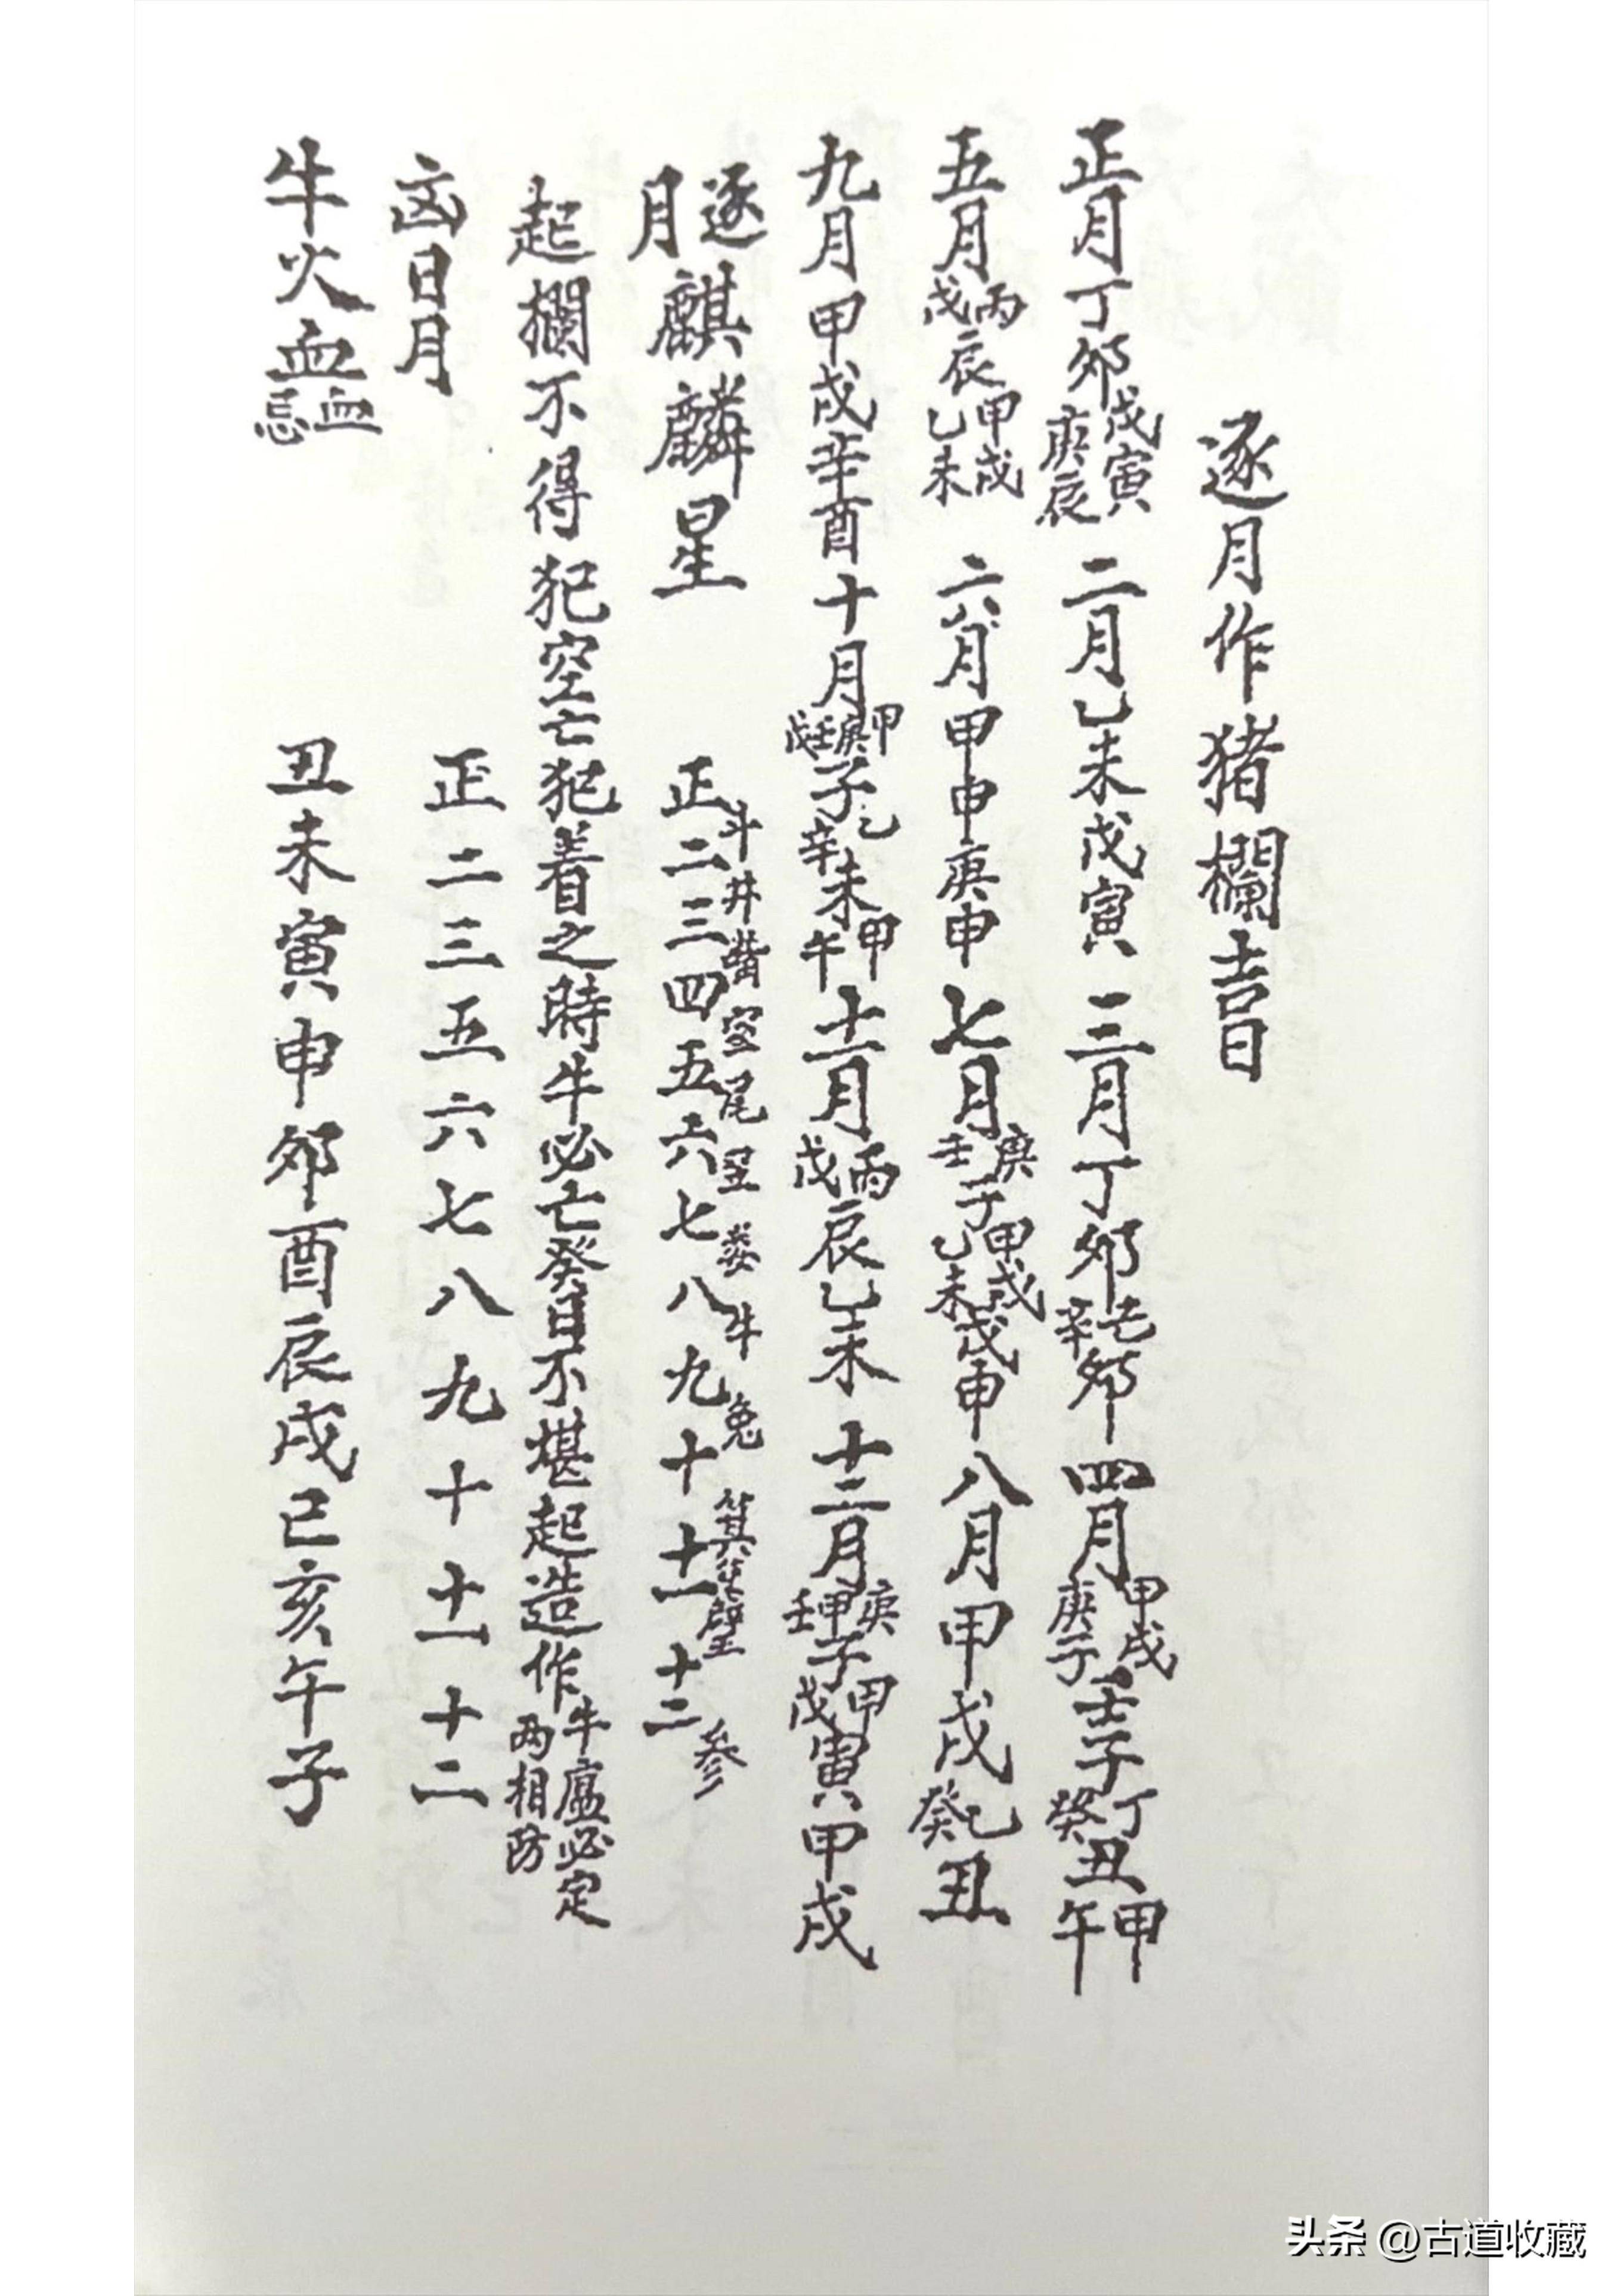 逐月作猪欄吉日
正月丁夘戊寅庚辰 二月乙未戊寅 三月丁夘辛夘 四月甲戌庚子壬子丁癸丑甲午
五月丙戊辰甲戌乙未 六月甲申庚申 七月庚壬子甲戌乙未戊申 八月甲戌乙癸丑
九月甲戌辛酉 十月甲庚壬戊子乙辛未甲午 十一月丙戊辰乙未 十二月庚甲壬子甲戊寅甲戌
逐月麒麟星 正二三四五六七八九十十一十二
斗井觜室尾 娄牛 箕 壁参
起欄不得犯空亡犯着之時牛必亡癸日不堪起造作牛廬必定两相防
凶日月 正二三五六七八九十十一十二
牛火血血忌 丑未寅申夘酉辰戌巳亥午子
头条 @古道收藏